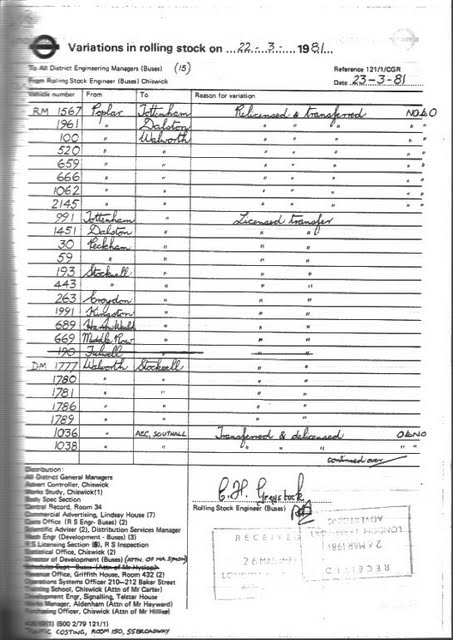 Variations in rolling stock on ...22-.3.-...1981....
To All District Engineering Managers (Buses) (15) Reference 121/1/CGR
From Rolling Stock Engineer (Buses) Chiswick Date 23-3-81
Vehicle number From To Reason for variation
RM 1567 Poplar Tottenham Relicensed & transferred NO&O
1961 " Dalston " " " " "
100 " Walworth " " " " "
520 " " " " " " "
659 " " " " " " "
666 " " " " " " "
1062 " " " " " " "
2145 " " " " " " "
991 Tottenham " Licensed transfer
1451 Dalston " " "
30 Peckham " " "
59 " " " "
193 Stockwell " " "
443 " " " "
263 Croydon " " "
1991 Kingston " " "
689 Harrow Weald " " "
669 Middle Row " " "
190 Fulwell " " "
DM 1777 Walworth Stockwell " "
1780 " " " "
1781 " " " "
1786 " " " "
1789 " " " "
1036 " AEC, SOUTHALL Transferred & delicensed O&NO
1038 " " " " " " "
continued over
Distribution:
All District General Managers
Advert Controller, Chiswick
Works Study, Chiswick(1)
Body Spec Section
Central Record, Room 34
Commercial Advertising, Lindsay House (7)
Claims Office (R S Engr- Buses) (2)
Scientific Adviser (2), Distribution Services Manager
Mech Engr (Development - Buses) (3)
R S Licensing Section (8), R S Inspection
Statistical Office, Chiswick (2)
Director of Development (Buses) (ATTN. OF MR. SYMON)
Schedules Supt - Buses (Attn of Mr Hyslop)
Revenue Office, Griffith House, Room 432 (2)
Operations Systems Officer 210-212 Baker Street
Training School, Chiswick (Attn of Mr Carter)
Development Engr, Signalling, Telstar House
Works Manager, Aldenham (Attn of Mr Hayward)
Purchasing Officer, Chiswick (Attn of Mr Hillier)
(1) (500 2/79 121/1)
TRAFFIC COSTING, ROOM 150, 55 BROADWAY
C.H. Greystock
Rolling Stock Engineer (Buses)
RECEIVED
26 MAR
LONDON
ADVERTISING
24 MAR 1981
RECEIVED